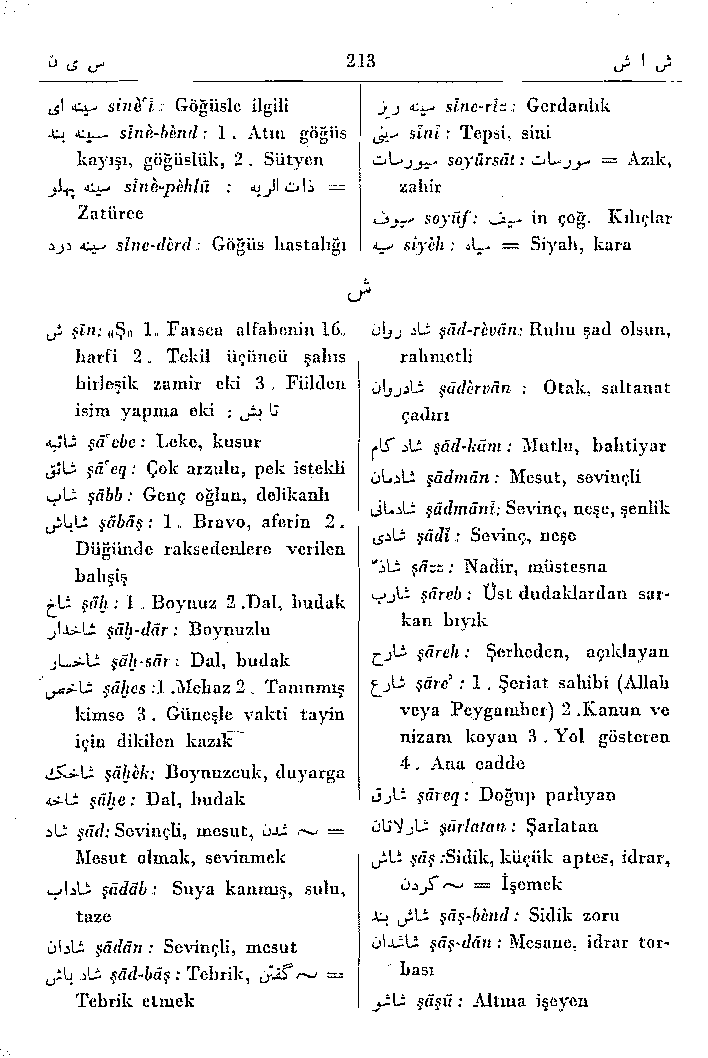 س ی ن 213 ش ا ش
سینه ای sīnè'ī : Göğüsle ilgili
سینه بند sīnè-bènd : 1 . Atın göğüs
kayışı, göğüslük, 2 . Sütyen
سینه پهلو sīnè-pèhlū : ذات الریه =
Zatüree
سینه درد sīne-dèrd : Göğüs hastalığı
سینه ریز sīne-rīz : Gerdanlık
سینی sīnī : Tepsi, sini
سیورسات soyūrsāt : سورسات = Azık,
zahir
سیوف soyūf : سیف in çoğ. Kılıçlar
سیه siyèh : سیاه = Siyah, kara
ش
ش şīn: „Ş„ 1. Farsca alfabenin 16.
harfi 2 . Tekil üçüncü şahıs
birleşik zamir eki 3 . Fiilden
isim yapma eki : تابش
شائبه şā'ebe : Leke, kusur
شائق şā'eq : Çok arzulu, pek istekli
شاب şābb : Genç oğlan, delikanlı
شاباش şābāş : 1 . Bravo, aferin 2 .
Düğünde raksedenlere verilen
bahşiş
شاخ şāḫ : 1 . Boynuz 2 .Dal, budak
شاخدار şāḫ-dār : Boynuzlu
شاخسار şāḫ-sār : Dal, budak
شاخص şāḫes :1 .Mehaz 2 . Tanınmış
kimse 3 . Güneşle vakti tayin
için dikilen kazık
شاخک şāḫèk: Boynuzcuk, duyarga
شاخه şāḫe : Dal, budak
شاد şād: Sevinçli, mesut, شدن ~ =
Mesut olmak, sevinmek
شاداب şādāb : Suya kanmış, sulu,
taze
شادان şādān : Sevinçli, mesut
شاد باش şād-bāş : Tebrik, گفتن ~ =
Tebrik etmek
شاد روان şād-rèvān: Ruhu şad olsun,
rahmetli
شادروان şādèrvān : Otak, saltanat
çadırı
شاد کام şād-kām : Mutlu, bahtiyar
شادمان şādmān : Mesut, sevinçli
شادمانی şādmānī: Sevinç, neşe, şenlik
شادی şādī : Sevinç, neşe
شاذّ şāzz : Nadir, müstesna
شارب şāreb : Üst dudaklardan sar-
kan bıyık
شارح şāreh : Şerheden, açıklayan
شارع şāre' : 1 . Şeriat sahibi (Allah
veya Peygamber) 2 .Kanun ve
nizam koyan 3 . Yol gösteren
4 . Ana cadde
شارق şāreq : Doğup parlıyan
شارلاتان şārlatan : Şarlatan
شاش şāş :Sidik, küçük aptes, idrar,
کردن ~ = İşemek
شاش بند şāş-bènd : Sidik zoru
شاشدان şāş-dān : Mesane, idrar tor-
bası
شاشو şāşū : Altına işeyen